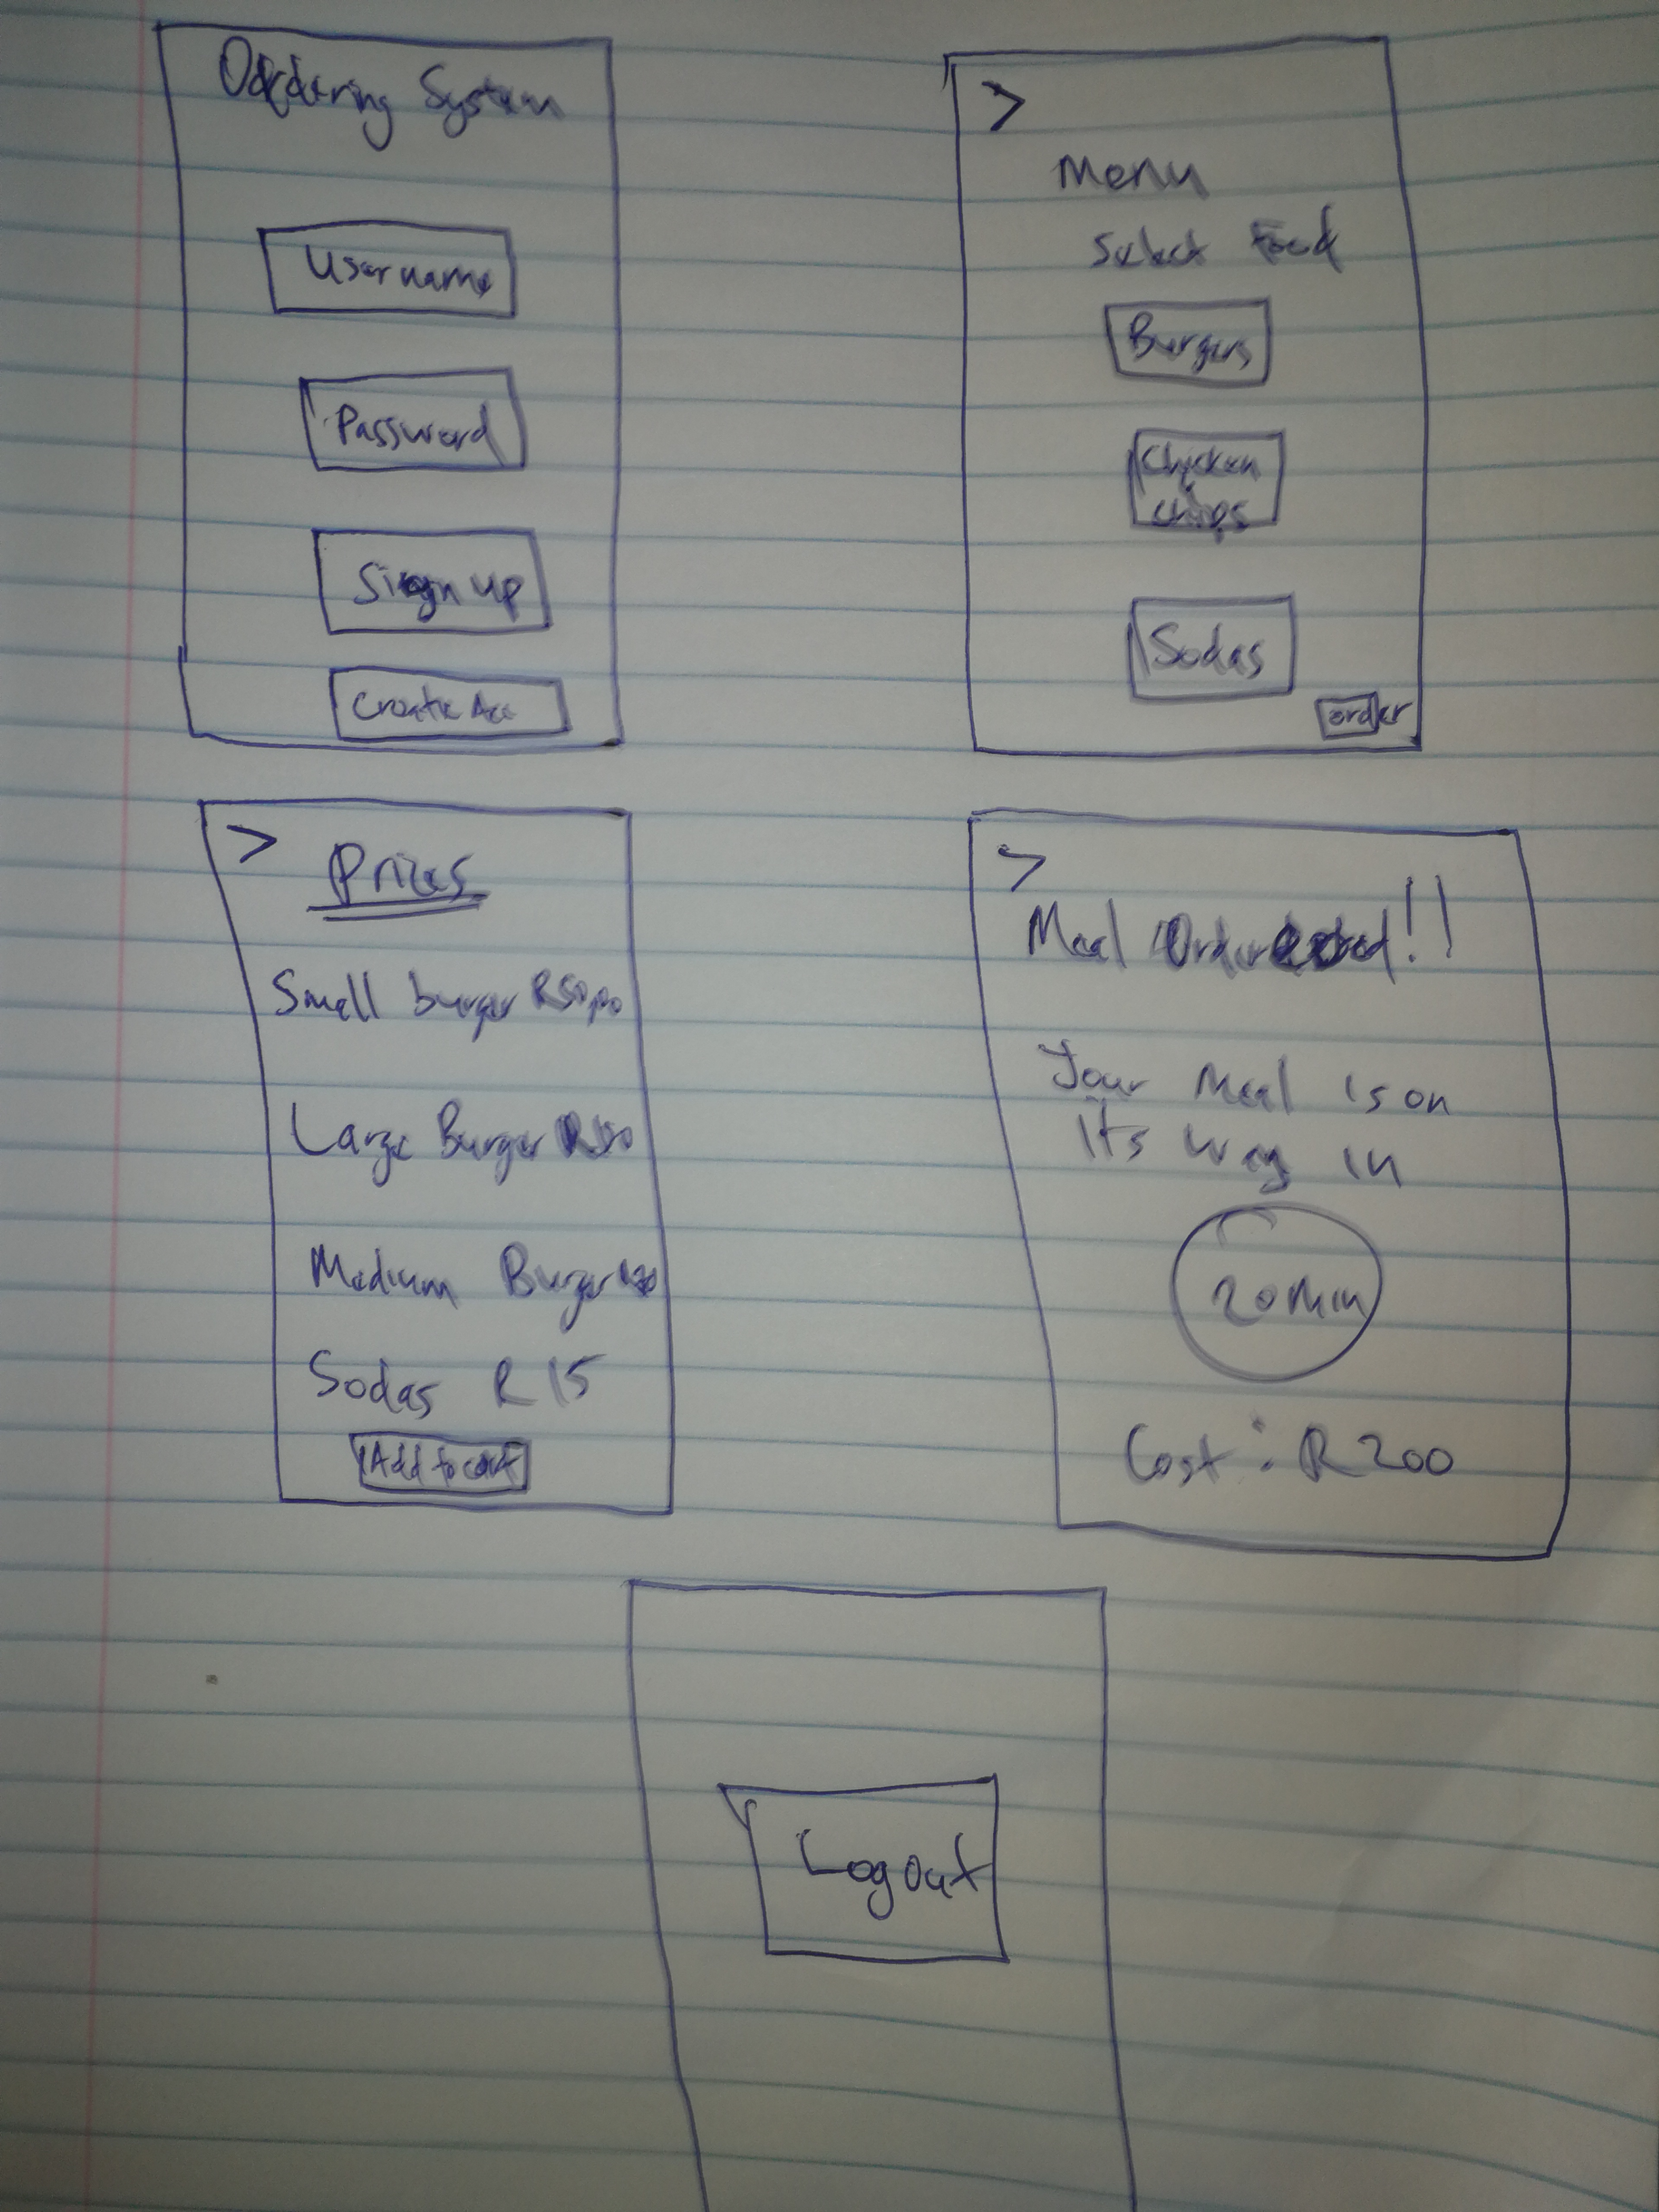 Ordering System
Username
Password
Sign up
Create Acc
>
Menu
Select Food
Burgers
Chicken
Chips
Sodas
order
>
Prizes
Small burger
Large Burger
Medium Burger
Sodas R 15
Add to cart
>
Meal Ordered!!
Your Meal is on
Its way in
20 Min
Cost : R 200
Log out